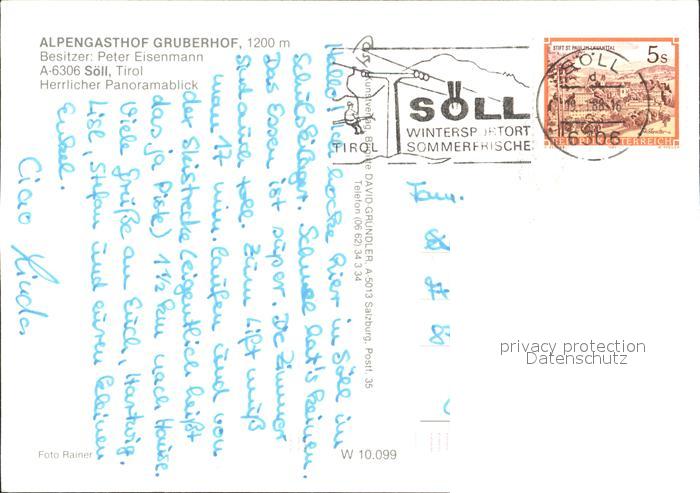 ALPENGASTHOF GRUBERHOF, 1200 m
Besitzer: Peter Eisenmann
A-6306 Söll, Tirol
Herrlicher Panoramablick
TIROL
SÖLL
WINTERSPORTORT
SOMMERFRISCHE
STIFT ST. PAUL IM LAVANTTAL
5s
REPUBLIK ÖSTERREICH
SÖLL
6306
Hallo! Ich hocke hier in Söll im
Schulskilager. Schnee hat's keinen.
Das Essen ist super. Die Zimmer
sind auch toll. Zum Lift muß
man 17 min. laufen und von
der Skistrecke (eigentlich heißt
das ja Piste) 1 1/2 km nach Hause.
Viele Grüße an Euch, Hartwig,
Lisl, Stefan und euren kleinen
Enkel.
Ciao Linda
DAVID GRUNDLER, A-5013 Salzburg, Postf. 35
Telefon (06 62) 34 3 34
privacy protection
Datenschutz
Foto Rainer
W 10.099